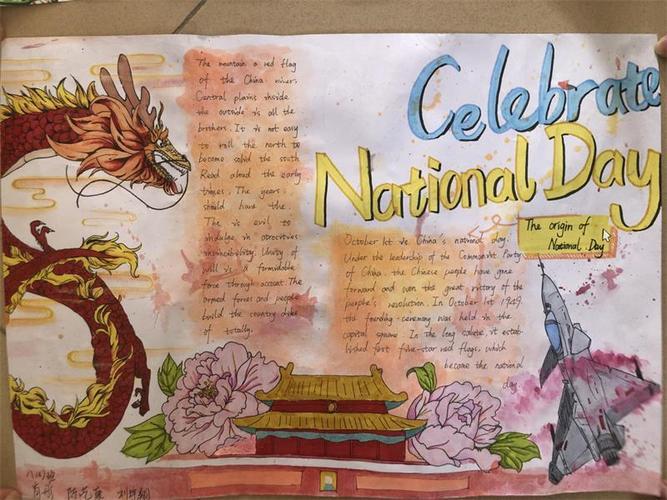 Celebrate
National Day
The origin of
National Day
The mountain a red flag
of the China river,
Central plains inside
the outside is all the
brothers. It is not easy
to roll the north to
become solid the south
Read aloud the early
times. The years
should have the.
The is evil to
indulge in atrocities
invincibility. Unity of
will is a formidable
force through account. The
armed forces and people
build the country dike
of totally.
October 1st is China's national day.
Under the leadership of the Communist Party
of China, the Chinese people have gone
forward and won the great victory of the
people's revolution. In October 1st 1949.
the founding ceremony was held in the
capital square. In the long salute, it estab-
lished first five-star red flags, which
become the national
day